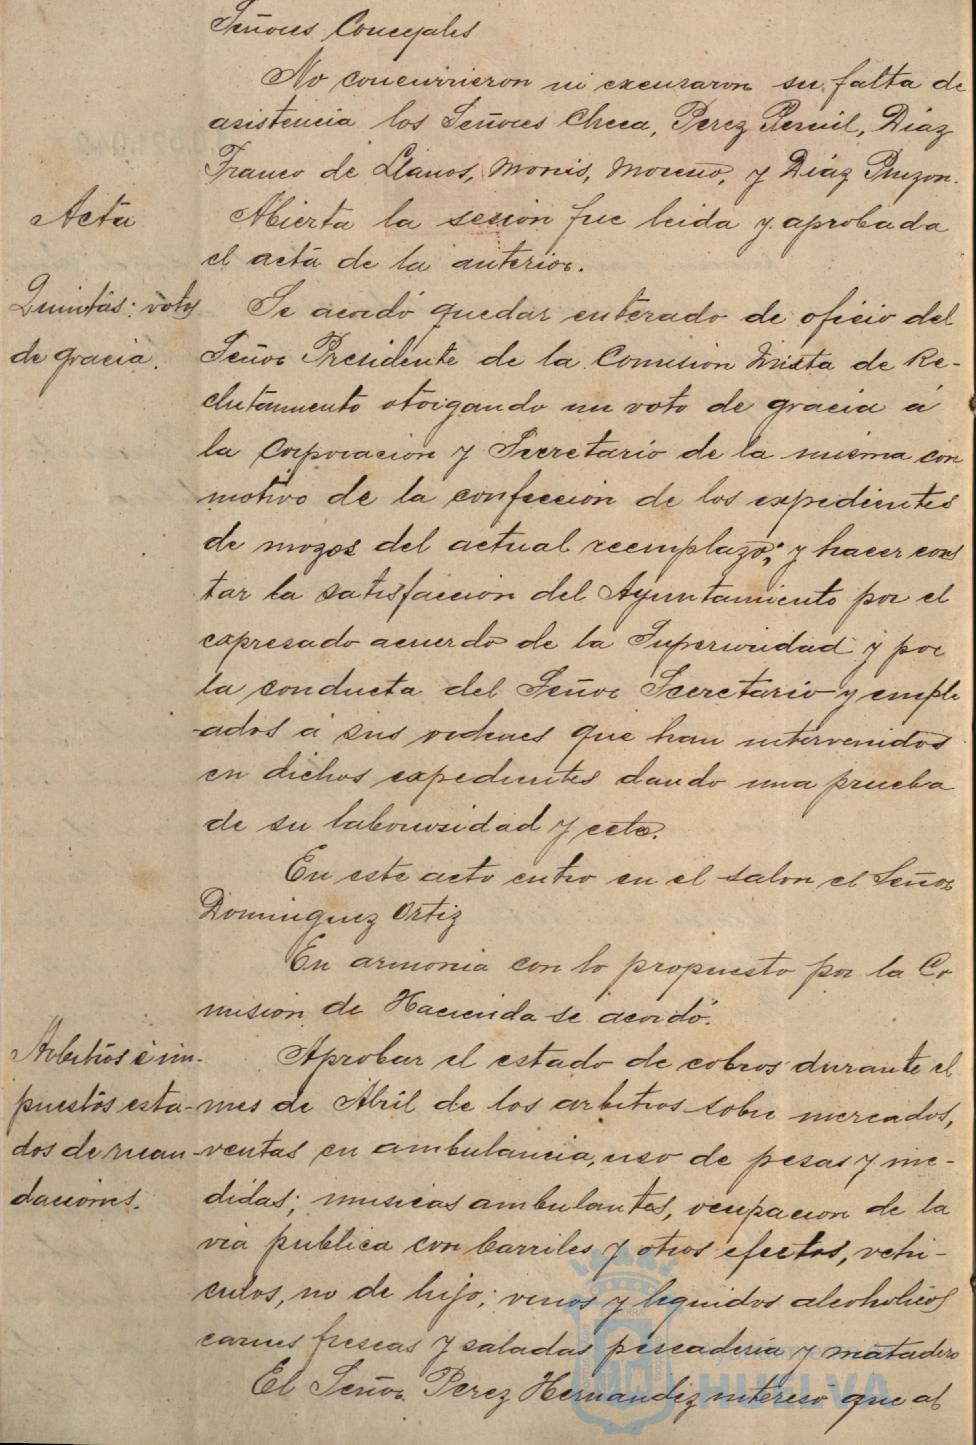 Señores Concejales
No concurrieron ni excusaron su falta de
asistencia los Señores Checa, Perez Pernil, Diaz
Franco de Llanos, Monis, Moreno, y Diaz Pinzon.
Acta
Abierta la sesion fue leida y aprobada
el acta de la anterior.
Quintas: votos
de gracia.
Se acordó quedar enterado de oficio del
Señor Presidente de la Comision Mixta de Re-
clutamiento otorgando un voto de gracia á
la Corporacion y Secretario de la misma con
motivo de la confeccion de los expedientes
de mozos del actual reemplazo; y hacer cons
tar la satisfaccion del Ayuntamiento por el
expresado acuerdo de la Superioridad y por
la conducta del Señor Secretario y emple
-ados á sus ordenes que han intervenido
en dichos expedientes dando una prueba
de su laboriosidad y celo.
En este acto entro en el salon el Señor
Dominguez Ortiz
En armonia con lo propuesto por la Co
mision de Hacienda se acordó:
Arbitrios é im-
puestos esta-
dos de recau-
daciones.
Aprobar el estado de cobros durante el
mes de Abril de los arbitrios sobre mercados,
ventas en ambulancia, uso de pesas y me-
didas; musicas ambulantes, ocupacion de la
via publica con barriles y otros efectos, vehi-
culos, no de lujo; vinos y liquidos alcoholicos
carnes frescas y saladas pescaderia y matadero
El Señor Perez Hernandez interesó que al
HUELVA